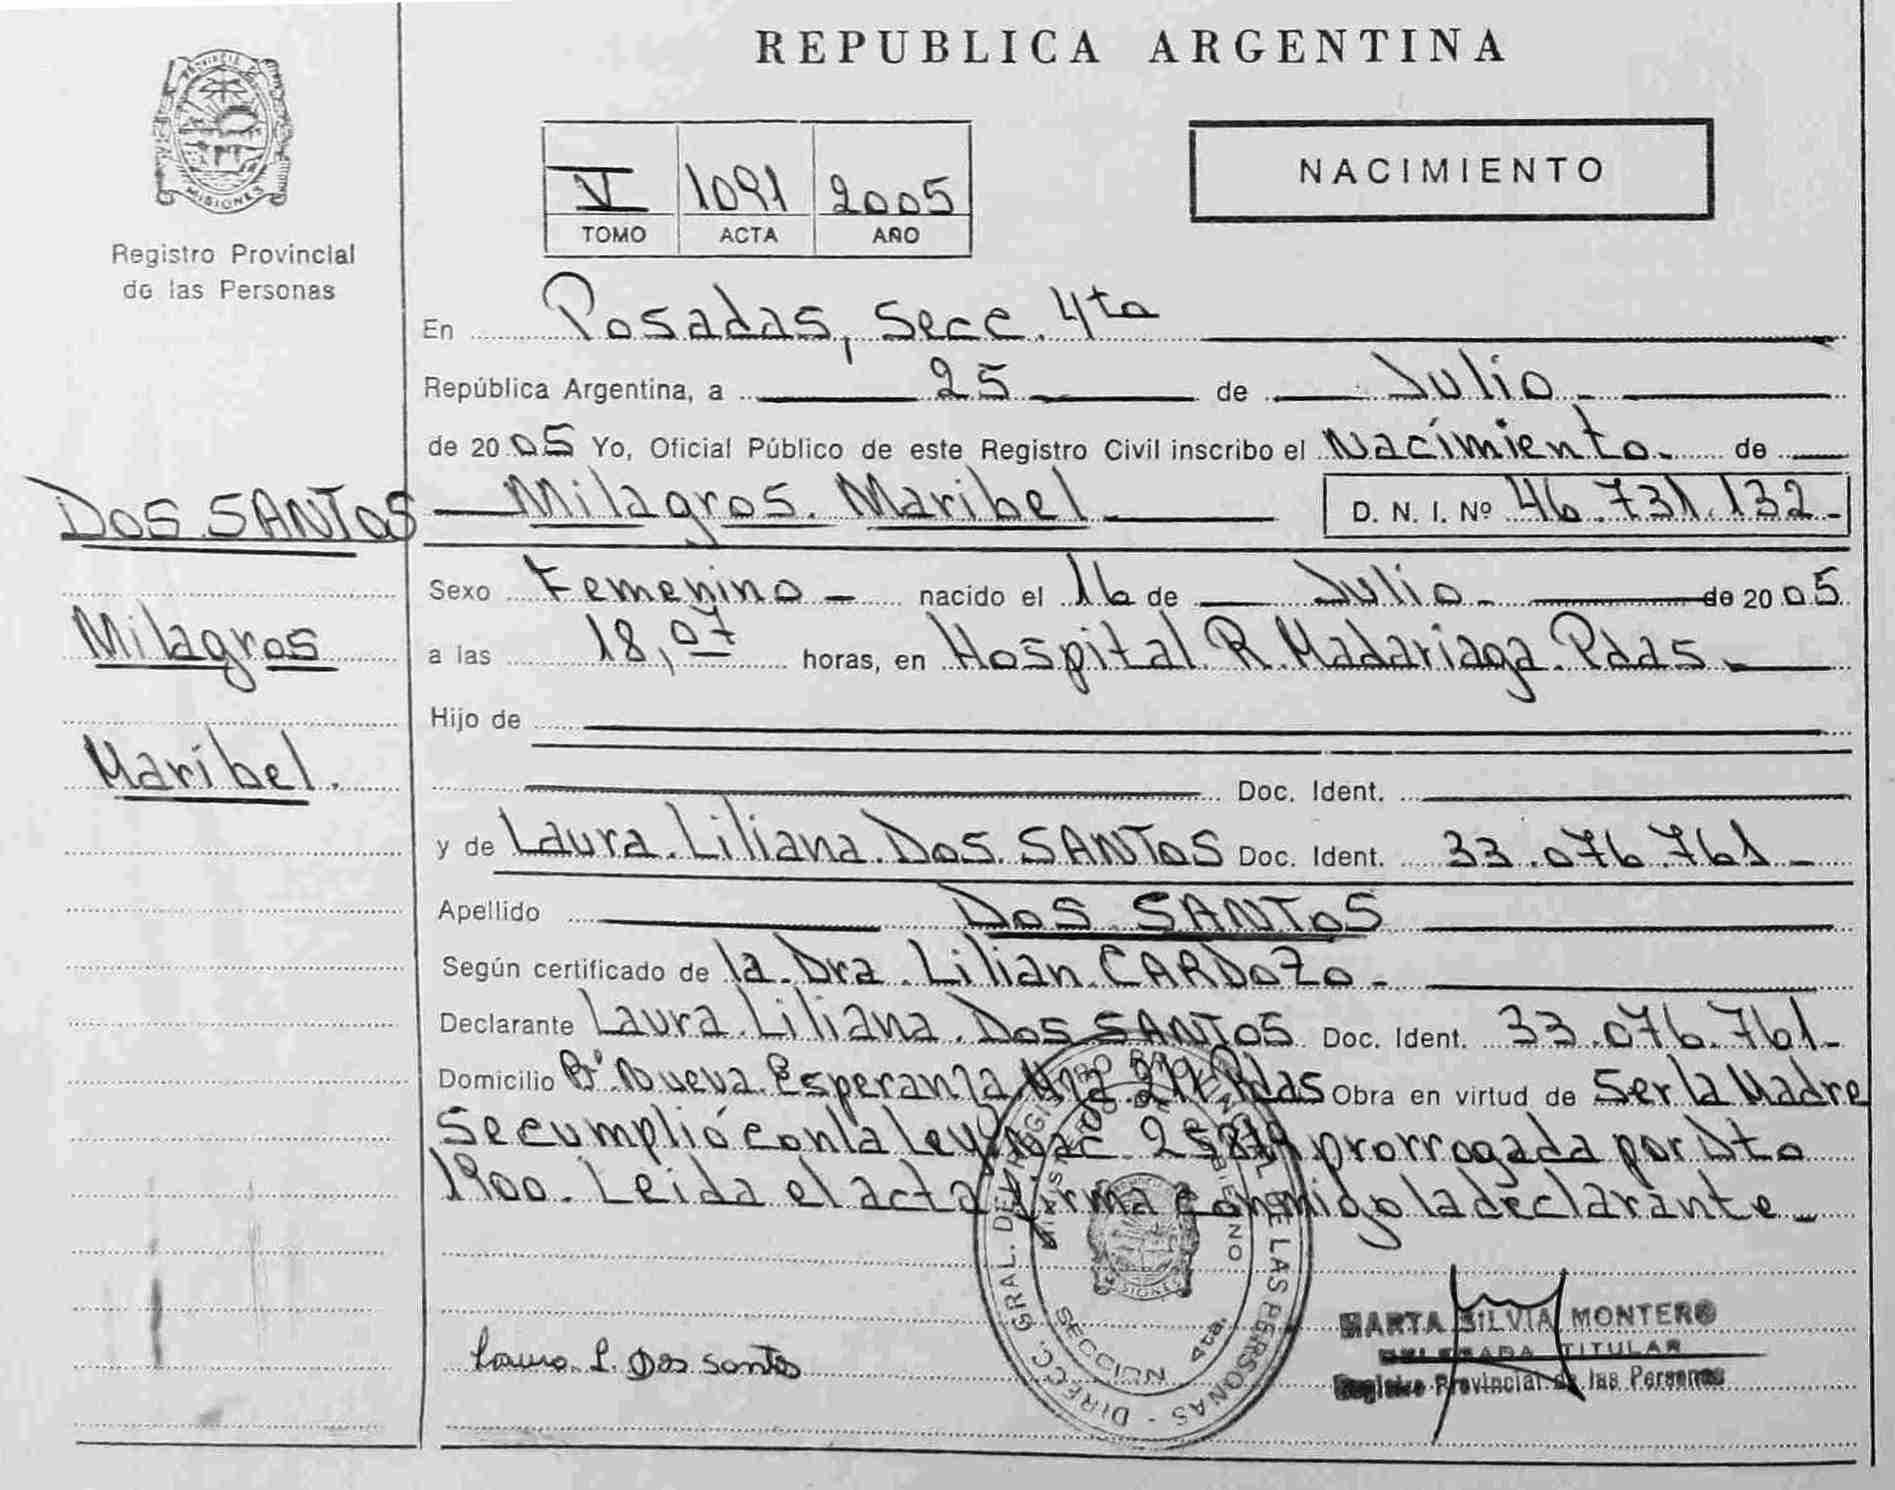 REPUBLICA ARGENTINA
PROVINCIA DE MISIONES
Registro Provincial
de las Personas
NACIMIENTO
V 1091 2005
TOMO ACTA AÑO
En Posadas, Secc. 4ta
República Argentina, a 25 de Julio
de 2005 Yo, Oficial Público de este Registro Civil inscribo el Nacimiento de
DOS SANTOS
Milagros
Maribel.
Milagros Maribel D. N. I. Nº 46.731.132
Sexo Femenino nacido el 16 de Julio de 2005
a las 18,07 horas, en Hospital R. Madariaga Pdas
Hijo de
Doc. Ident.
y de Laura Liliana Dos SANTOS Doc. Ident. 33.076.761
Apellido Dos SANTOS
Según certificado de la Dra. Lilian CARDOZO
Declarante Laura Liliana Dos SANTOS Doc. Ident. 33.076.761
Domicilio Bº Nueva Esperanza Pdas Obra en virtud de Ser la Madre
Se cumplió con la ley Nac. prorrogada por Dto
1900. Leida el acta firma conmigo la declarante
DIRECC. GRAL. DEL REGISTRO PROVINCIAL DE LAS PERSONAS
MINISTERIO DE GOBIERNO
SECCION 4ta.
MISIONES
Laura L. Dos santos
MARTA SILVIA MONTERO
DELEGADA TITULAR
Registro Provincial de las Personas